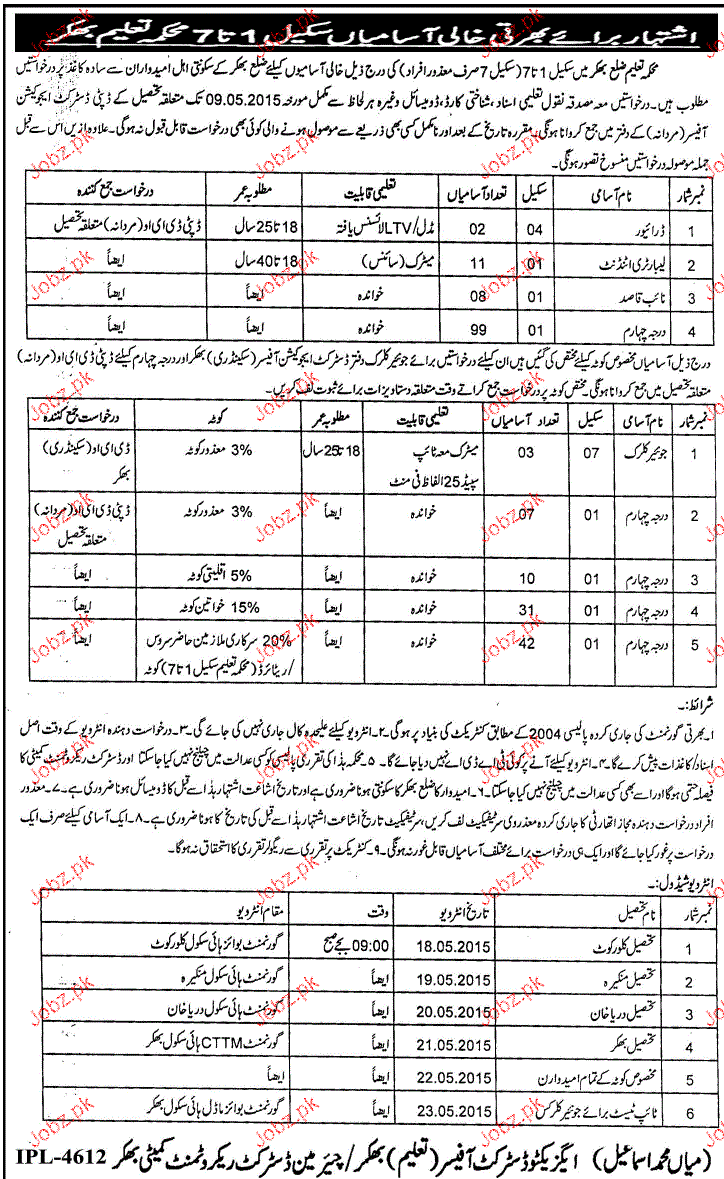 اشتہار برائے بھرتی خالی آسامیاں سکیل 1 تا 7 محکمہ تعلیم بھکر
محکمہ تعلیم ضلع بھکر میں سکیل 1 تا 7 (سکیل 7 صرف معذور افراد) کی درج ذیل خالی آسامیوں کیلئے ضلع بھکر کے سکونتی اہل امیدواران سے سادہ کاغذ پر درخواستیں
مطلوب ہیں۔ درخواستیں معہ مصدقہ نقول تعلیمی اسناد، شناختی کارڈ، ڈومیسائل وغیرہ ہر لحاظ سے مکمل مورخہ 09.05.2015 تک متعلقہ تحصیل کے ڈپٹی ڈسٹرکٹ ایجوکیشن
آفیسر (مردانہ) کے دفتر میں جمع کروانا ہونگی۔ مقررہ تاریخ کے بعد اور نامکمل کسی بھی ذریعے سے موصول ہونے والی کوئی بھی درخواست قابل قبول نہ ہوگی۔ علاوہ ازیں اس سے قبل
جملہ موصولہ درخواستیں منسوخ تصور ہونگی۔
نمبر شمار نام آسامی سکیل تعداد آسامیاں تعلیمی قابلیت مطلوبہ عمر درخواست جمع کنندہ
1 ڈرائیور 04 02 مڈل/LTV لائسنس یافتہ 18 تا 25 سال ڈپٹی ڈی ای او (مردانہ) متعلقہ تحصیل
2 لیبارٹری اٹنڈنٹ 01 11 میٹرک (سائنس) 18 تا 40 سال ایضاً
3 نائب قاصد 01 08 خواندہ ایضاً ایضاً
4 درجہ چہارم 01 99 خواندہ ایضاً ایضاً
درج ذیل آسامیاں مخصوص کوٹہ کیلئے مختص کی گئیں ہیں ان کیلئے درخواستیں برائے جونیئر کلرک دفتر ڈسٹرکٹ ایجوکیشن آفیسر (سیکنڈری) بھکر اور درجہ چہارم کیلئے ڈپٹی ڈی ای او (مردانہ)
متعلقہ تحصیل میں جمع کروانا ہونگی۔ مختص کوٹہ پر درخواست جمع کراتے وقت متعلقہ دستاویزات برائے ثبوت لف کریں۔
نمبر شمار نام آسامی سکیل تعداد آسامیاں تعلیمی قابلیت مطلوبہ عمر کوٹہ درخواست جمع کنندہ
1 جونیئر کلرک 07 03 میٹرک معہ ٹائپ 18 تا 25 سال 3% معذور کوٹہ ڈی ای او (سیکنڈری)
سپیڈ 25 الفاظ فی منٹ بھکر
2 درجہ چہارم 01 07 خواندہ ایضاً 3% معذور کوٹہ ڈپٹی ڈی ای او (مردانہ)
متعلقہ تحصیل
3 درجہ چہارم 01 10 خواندہ ایضاً 5% اقلیتی کوٹہ ایضاً
4 درجہ چہارم 01 31 خواندہ ایضاً 15% خواتین کوٹہ ایضاً
5 درجہ چہارم 01 42 خواندہ ایضاً 20% سرکاری ملازمین حاضر سروس ایضاً
/ریٹائرڈ (محکمہ تعلیم سکیل 1 تا 7) کوٹہ
شرائط:۔
۱۔ بھرتی گورنمنٹ کی جاری کردہ پالیسی 2004 کے مطابق کنٹریکٹ کی بنیاد پر ہوگی۔ ۲۔ انٹرویو کیلئے علیحدہ کال جاری نہیں کی جائے گی۔ ۳۔ درخواست دہندہ انٹرویو کے وقت اصل
اسناد/کاغذات پیش کرے گا۔ ۴۔ انٹرویو کیلئے آنے پر کوئی ٹی اے ڈی اے نہیں دیا جائے گا۔ ۵۔ محکمہ ہذا کی تقرری پالیسی کو کسی عدالت میں چیلنج نہیں کیا جا سکتا اور ڈسٹرکٹ ریکروٹمنٹ کمیٹی کا
فیصلہ حتمی ہوگا اور اسے بھی کسی عدالت میں چیلنج نہیں کیا جا سکتا۔ ۶۔ امیدوار کا ضلع بھکر کا سکونتی ہونا ضروری ہے اور تاریخ اشاعت اشتہار ہذا سے قبل کا ڈومیسائل ہونا ضروری ہے۔ ۷۔ معذور
افراد درخواست دہندہ مجاز اتھارٹی کا جاری کردہ معذوری سرٹیفکیٹ لف کریں، سرٹیفکیٹ تاریخ اشاعت اشتہار ہذا سے قبل کی تاریخ کا ہونا ضروری ہے۔ ۸۔ ایک آسامی کیلئے صرف ایک
درخواست پر غور کیا جائے گا اور ایک ہی درخواست برائے مختلف آسامیاں قابل غور نہ ہونگی۔ ۹۔ کنٹریکٹ پر تقرری سے ریگولر تقرری کا استحقاق نہ ہوگا۔
انٹرویو شیڈول:۔
نمبر شمار نام تحصیل تاریخ انٹرویو وقت مقام انٹرویو
1 تحصیل کلورکوٹ 18.05.2015 09:00 بجے صبح گورنمنٹ بوائز ہائی سکول کلورکوٹ
2 تحصیل منکیرہ 19.05.2015 ایضاً گورنمنٹ ہائی سکول منکیرہ
3 تحصیل دریا خان 20.05.2015 ایضاً گورنمنٹ ہائی سکول دریا خان
4 تحصیل بھکر 21.05.2015 ایضاً گورنمنٹ CTTM ہائی سکول بھکر
5 مخصوص کوٹہ کے تمام امیدوارن 22.05.2015 ایضاً ایضاً
6 ٹائپ ٹیسٹ برائے جونیئر کلرکس 23.05.2015 ایضاً گورنمنٹ بوائز ماڈل ہائی سکول بھکر
(میاں محمد اسماعیل) ایگزیکٹو ڈسٹرکٹ آفیسر (تعلیم) بھکر/چیئرمین ڈسٹرکٹ ریکروٹمنٹ کمیٹی بھکر IPL-4612
Jobz.pk